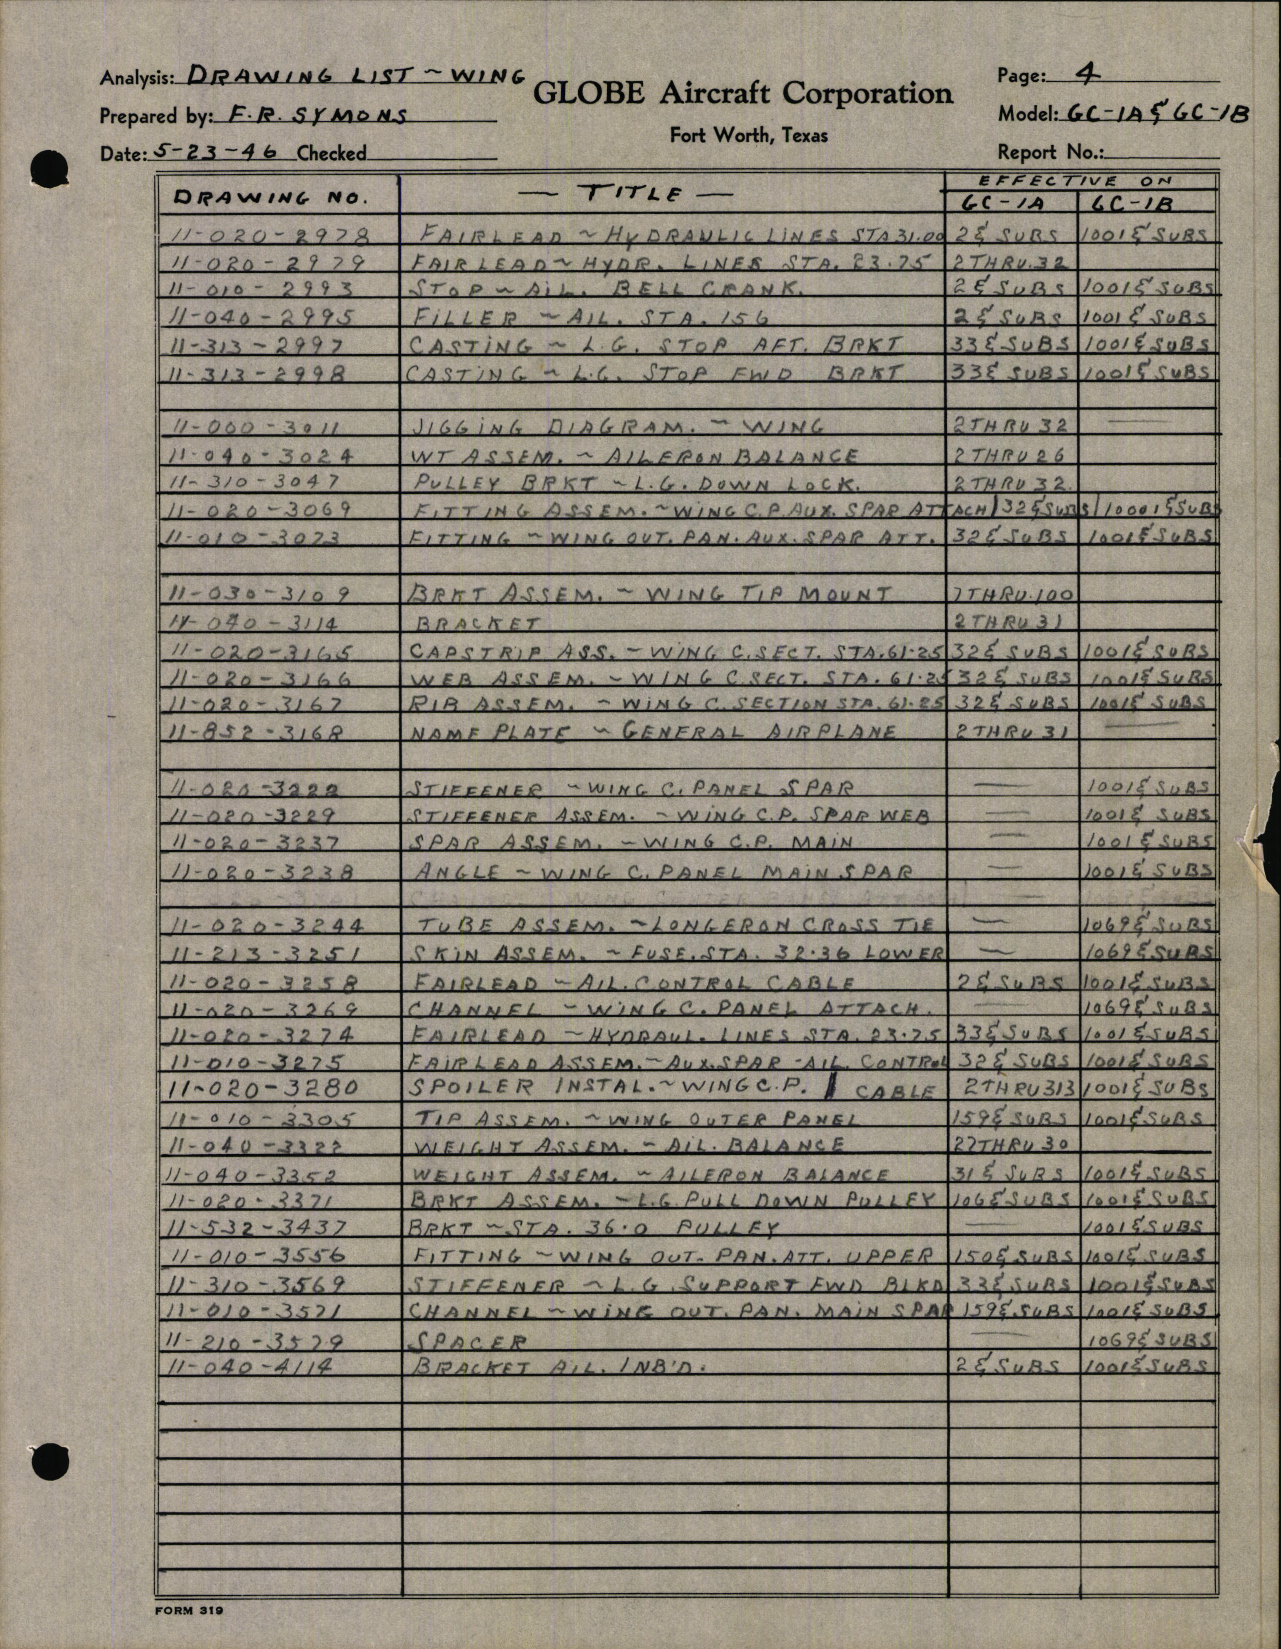 Analysis: DRAWING LIST ~ WING GLOBE Aircraft Corporation Page: 4
Prepared by: F.R. SYMONS Fort Worth, Texas Model: GC-1A & GC-1B
Date: 5-23-46 Checked Report No.:
DRAWING NO. — TITLE — EFFECTIVE ON
GC-1A GC-1B
11-020-2978 FAIRLEAD ~ HYDRAULIC LINES STA 31.00 2 & SUBS 1001 & SUBS
11-020-2979 FAIRLEAD ~ HYDR. LINES STA. 23.75 2 THRU 32
11-010-2993 STOP ~ AIL. BELL CRANK. 2 & SUBS 1001 & SUBS
11-040-2995 FILLER ~ AIL. STA. 156 2 & SUBS 1001 & SUBS
11-313-2997 CASTING ~ L.G. STOP AFT. BRKT 33 & SUBS 1001 & SUBS
11-313-2998 CASTING ~ L.G. STOP FWD BRKT 33 & SUBS 1001 & SUBS
11-000-3011 JIGGING DIAGRAM. ~ WING 2 THRU 32 —
11-040-3024 WT ASSEM. ~ AILERON BALANCE 2 THRU 26
11-310-3047 PULLEY BRKT ~ L.G. DOWN LOCK. 2 THRU 32.
11-020-3069 FITTING ASSEM. ~ WING C.P. AUX. SPAR ATTACH 32 & SUBS 10001 & SUBS
11-010-3073 FITTING ~ WING OUT. PAN. AUX. SPAR ATT. 32 & SUBS 1001 & SUBS
11-030-3109 BRKT ASSEM. ~ WING TIP MOUNT 7 THRU 100
11-040-3114 BRACKET 2 THRU 31
11-020-3165 CAPSTRIP ASS. ~ WING C. SECT. STA. 61.25 32 & SUBS 1001 & SUBS
11-020-3166 WEB ASSEM. ~ WING C. SECT. STA. 61.25 32 & SUBS 1001 & SUBS
11-020-3167 RIB ASSEM. ~ WING C. SECTION STA. 61.25 32 & SUBS 1001 & SUBS
11-852-3168 NAME PLATE ~ GENERAL AIRPLANE 2 THRU 31 —
11-020-3222 STIFFENER ~ WING C. PANEL SPAR — 1001 & SUBS
11-020-3229 STIFFENER ASSEM. ~ WING C.P. SPAR WEB — 1001 & SUBS
11-020-3237 SPAR ASSEM. ~ WING C.P. MAIN — 1001 & SUBS
11-020-3238 ANGLE ~ WING C. PANEL MAIN SPAR — 1001 & SUBS
11-020-3244 TUBE ASSEM. ~ LONGERON CROSS TIE — 1069 & SUBS
11-213-3251 SKIN ASSEM. ~ FUSE. STA. 32.36 LOWER — 1069 & SUBS
11-020-3258 FAIRLEAD ~ AIL. CONTROL CABLE 2 & SUBS 1001 & SUBS
11-020-3269 CHANNEL ~ WING C. PANEL ATTACH. — 1069 & SUBS
11-020-3274 FAIRLEAD ~ HYDRAUL. LINES STA. 23.75 33 & SUBS 1001 & SUBS
11-010-3275 FAIRLEAD ASSEM. ~ AUX. SPAR - AIL. CONTROL 32 & SUBS 1001 & SUBS
11-020-3280 SPOILER INSTAL. ~ WING C.P. | CABLE 2 THRU 313 1001 & SUBS
11-010-3305 TIP ASSEM. ~ WING OUTER PANEL 159 & SUBS 1001 & SUBS
11-040-3322 WEIGHT ASSEM. ~ AIL. BALANCE 27 THRU 30
11-040-3352 WEIGHT ASSEM. ~ AILERON BALANCE 31 & SUBS 1001 & SUBS
11-020-3371 BRKT ASSEM. ~ L.G. PULL DOWN PULLEY 106 & SUBS 1001 & SUBS
11-532-3437 BRKT ~ STA. 36.0 PULLEY — 1001 & SUBS
11-010-3556 FITTING ~ WING OUT. PAN. ATT. UPPER 150 & SUBS 1001 & SUBS
11-310-3569 STIFFENER ~ L.G. SUPPORT FWD BLKD 33 & SUBS 1001 & SUBS
11-010-3571 CHANNEL ~ WING OUT. PAN. MAIN SPAR 159 & SUBS 1001 & SUBS
11-210-3579 SPACER — 1069 & SUBS
11-040-4114 BRACKET AIL. INB'D. 2 & SUBS 1001 & SUBS
FORM 319